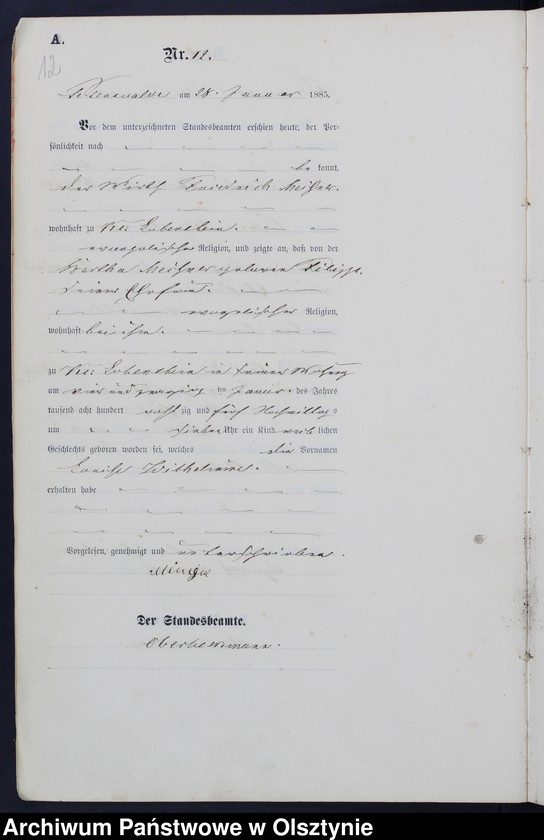 A.
12
Nr. 12.
am 28. Januar 1885.
Vor dem unterzeichneten Standesbeamten erschien heute, der Per-
sönlichkeit nach
be kannt,
der Wirth Friedrich
wohnhaft zu Kl: Lobenstein.
evangelischer Religion, und zeigte an, daß von der
geboren
seiner Ehefrau.
evangelischer Religion,
wohnhaft bei ihm.
zu Kl: Lobenstein in seiner Wohnung
am vier und zwanzig ten Januar des Jahres
tausend acht hundert acht zig und fünf Nachmittag s
um sieben Uhr ein Kind weib lichen
Geschlechts geboren worden sei, welches die Vornamen
Louise Wilhelmine.
erhalten habe
Vorgelesen, genehmigt und unterschrieben.
Der Standesbeamte.
Archiwum Państwowe w Olsztynie